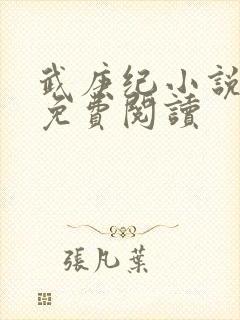 武庚纪小說
免費閱讀
張凡葉